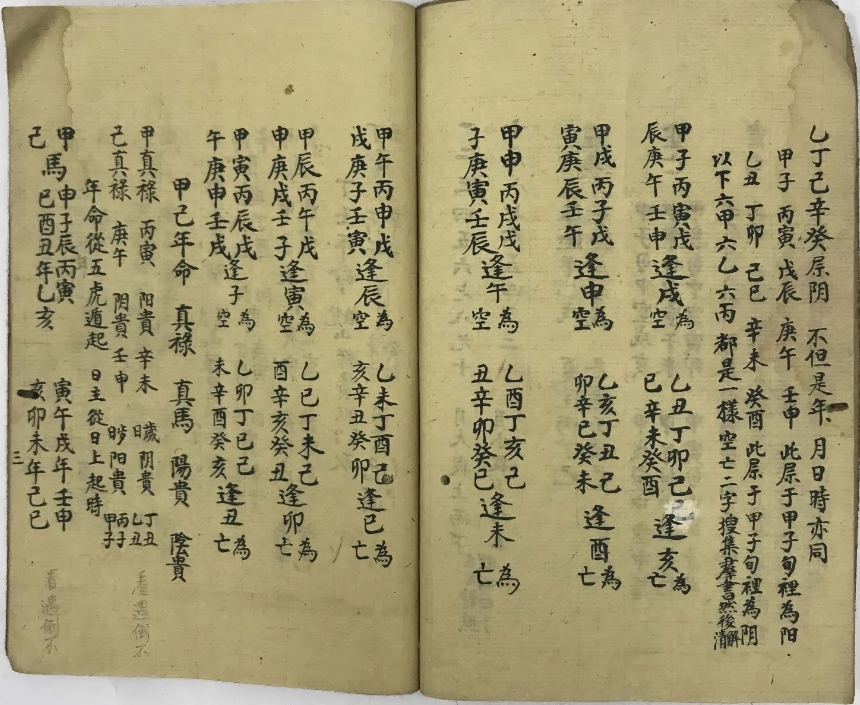 乙丁己辛癸屬阴 不但是年月日時亦同
甲子 丙寅 戊辰 庚午 壬申 此屬于甲子旬裡為阳
乙丑 丁卯 己巳 辛未 癸酉 此屬于甲子旬裡為阴
以下六甲六乙六丙都是一樣空亡二字搜集羣書然後解清
甲子丙寅戊 為 乙丑丁卯己 為
辰庚午壬申 逢戌 空 巳辛未癸酉 逢亥 亡
甲戌丙子戊 為 乙亥丁丑己 為
寅庚辰壬午 逢申 空 卯辛巳癸未 逢酉 亡
甲申丙戌戊 為 乙酉丁亥己 為
子庚寅壬辰 逢午 空 丑辛卯癸巳 逢未 亡
甲午丙申戊 為 乙未丁酉己 為
戌庚子壬寅 逢辰 空 亥辛丑癸卯 逢巳 亡
甲辰丙午戊 為 乙巳丁未己 為
申庚戌壬子 逢寅 空 酉辛亥癸丑 逢卯 亡
甲寅丙辰戊 為 乙卯丁巳己 為
午庚申壬戌 逢子 空 未辛酉癸亥 逢丑 亡
甲己年命 真禄 真馬 陽貴 陰貴
甲真禄 丙寅 阳貴 辛未 阴貴 丁丑 乙丑
己真禄 庚午 阴貴 壬申 阳貴 丙子 甲子
年命從五虎遁起 日主從日上起時
甲 馬 申子辰丙寅 寅午戌年壬申
己 巳酉丑年乙亥 亥卯未年己巳
三
看遇倒不
看遇倒不